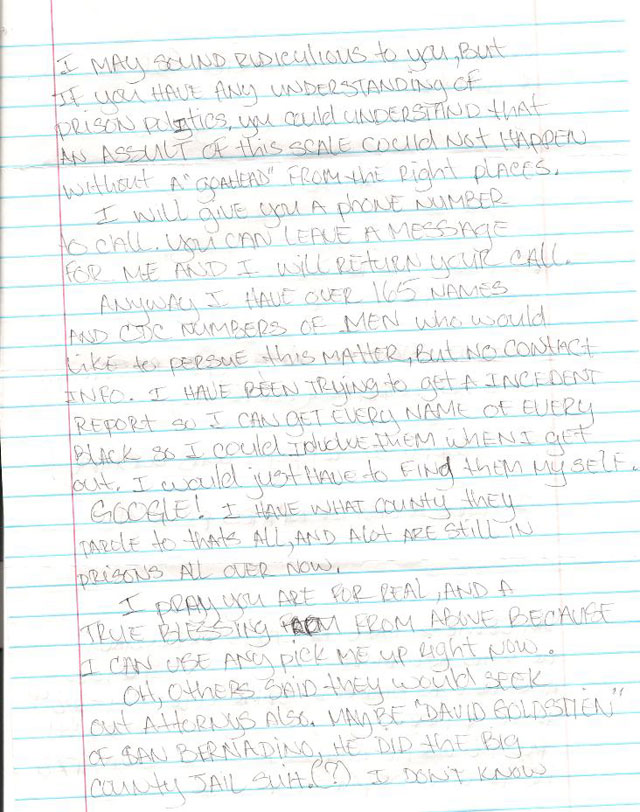 I MAY SOUND RIDICULIOUS to you, BUT
IF you HAVE ANY UNDERSTANDING OF
PRISON POLITICS, you could UNDERSTAND that
AN ASSULT OF this SCALE COULD NOT HAPPEN
without A "GOAHEAD" FROM the Right PLACES.
I WILL give you A phone NUMBER
to CALL. You CAN LEAVE A MESSAGE
FOR ME AND I WILL RETURN YOUR CALL.
ANYWAY I HAVE OVER 165 NAMES
AND CDC NUMBERS OF MEN who would
LIKE to PERSUE this MATTER, BUT NO CONTACT
INFO. I HAVE BEEN TRYING to get A INCEDENT
REPORT so I CAN GET EVERY NAME OF EVERY
BLACK so I could INVOLVE THEM WHEN I get
out. I would just HAVE to FIND them MY SELF.
GOOGLE! I HAVE WHAT COUNTY they
PAROLE to thats ALL, AND Alot ARE still IN
PRISONS ALL OVER NOW.
I PRAY you ARE FOR REAL, AND A
TRUE BLESSING FROM ABOVE BECAUSE
I CAN USE ANY pick ME up Right NOW.
OH, OTHERS SAID they would SEEK
out ATTORNYS Also. MAYBE "DAVID GOLDSTIEN"
OF SAN BERNADINO, HE DID the BIG
COUNTY JAIL SUIT.(?) I DON'T KNOW